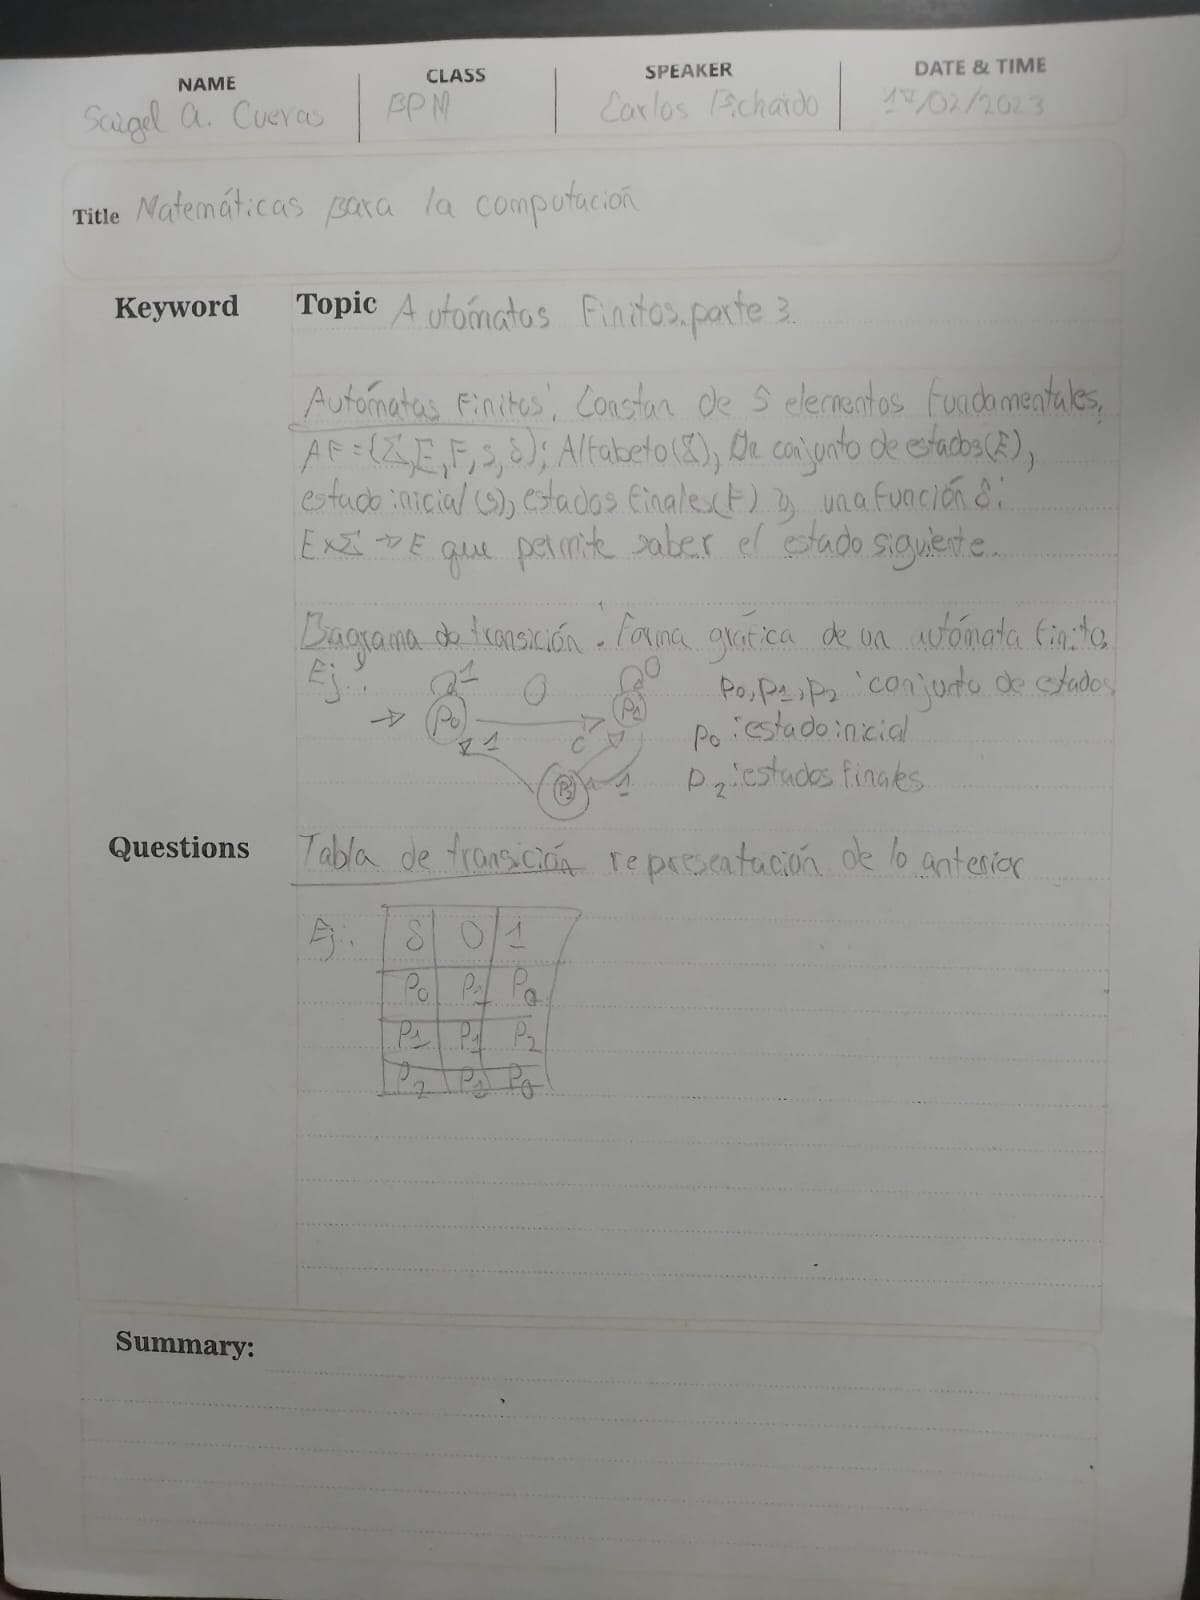 NAME CLASS SPEAKER DATE & TIME
Saigel A. Cuevas BPM Carlos Pichardo 17/02/2023
Title Matemáticas para la computación
Keyword Topic Autómatas Finitos. parte 3.
Autómatas Finitos: Constan de 5 elementos fundamentales,
AF=(Σ,E,F,s,δ); Alfabeto(Σ), Un conjunto de estados(E),
estado inicial (s), estados finales(F) y una función δ:
E×Σ → E que permite saber el estado siguiente.
Diagrama de transición: Forma gráfica de un autómata finito
Ej.: 1 0 0 P0, P1, P2: conjunto de estados
→ P0 P1 P0: estado inicial
1 P2 1 P2: estados finales
Questions Tabla de transición representación de lo anterior
Ej.: δ 0 1
P0 P1 P0
P1 P1 P2
P2 P1 P0
Summary: